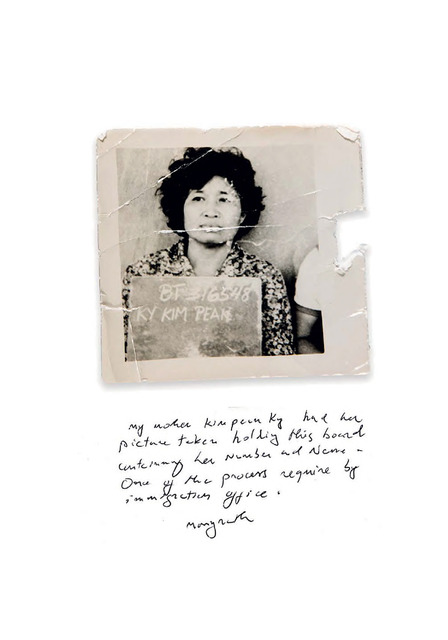 BT-316548
KY KIM PEAN
my mother kimpean Ky had her
picture taken holding this board
containing her number and Name.
One of the process require by
immigration office.